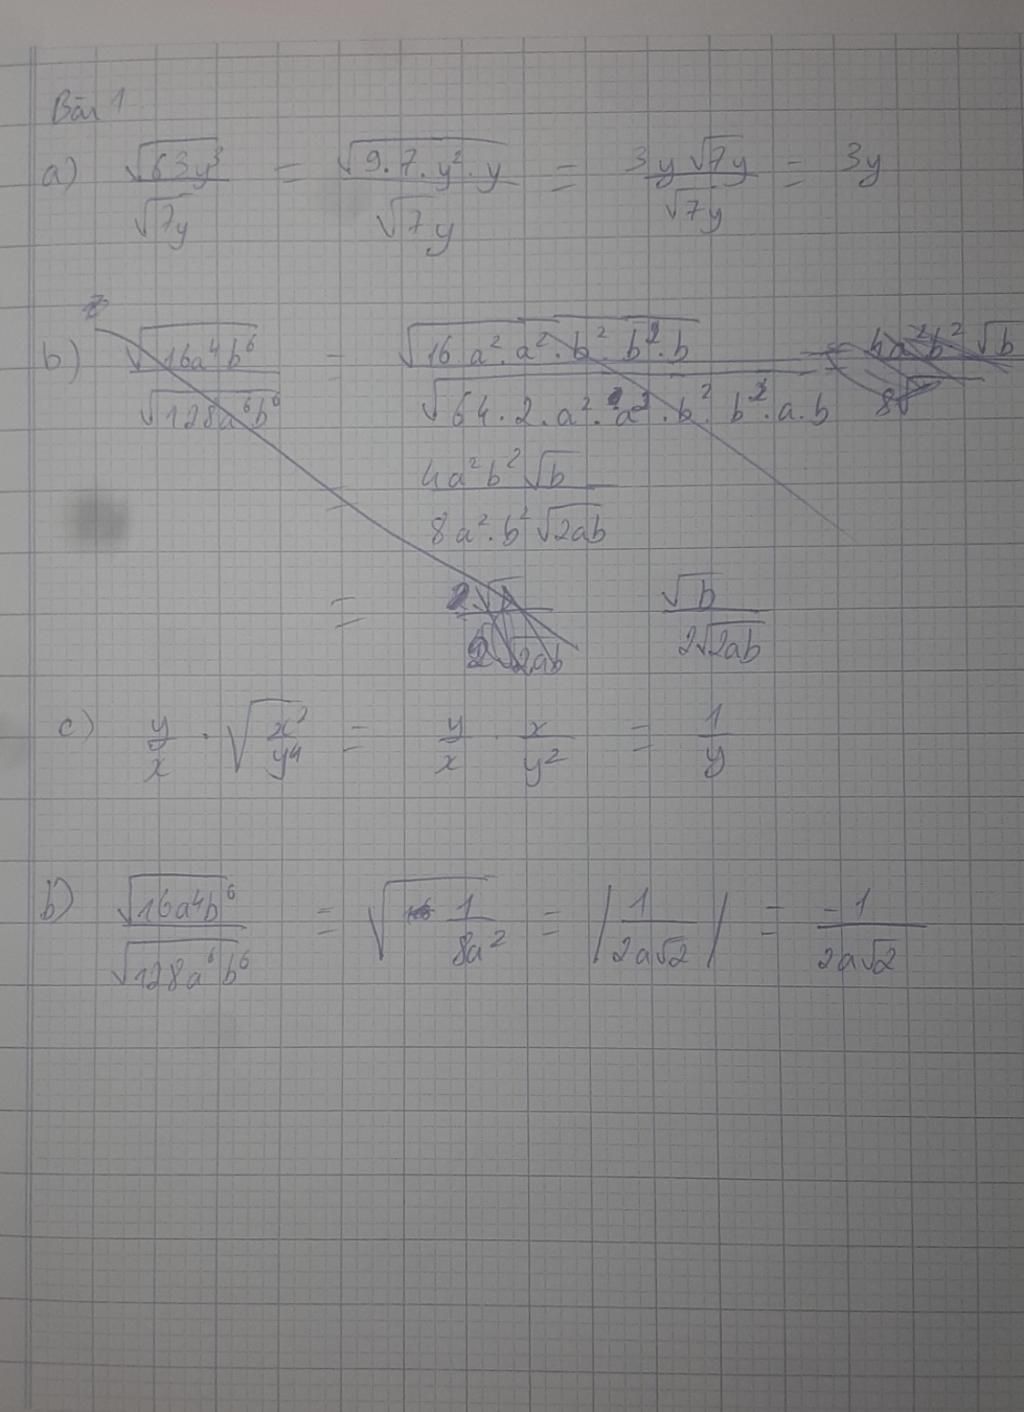 Bài 1
a) √63y³ / √7y = √9.7.y².y / √7y = 3y√7y / √7y = 3y
b) √16a⁴b⁶ / √128a⁶b⁶ = √16.a².a².b².b².b / √64.2.a².a².b².b².a.b = 4a²b²√b / 8√
= 4a²b²√b / 8a².b²√2ab
= 2√ / 2√2ab √b / 2√2ab
c) y/x . √x²/y⁴ = y/x . x/y² = 1/y
b) √16a⁴b⁶ / √128a⁶b⁶ = √1/8a² = |1/2a√2| = -1/2a√2